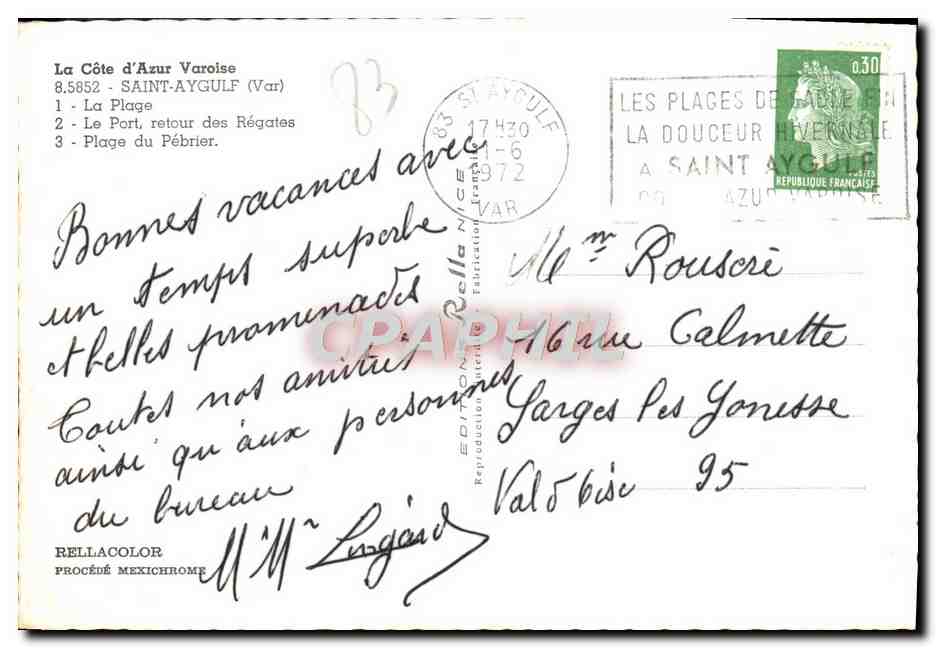 La Côte d'Azur Varoise
8.5852 - SAINT-AYGULF (Var)
1 - La Plage
2 - Le Port, retour des Régates
3 - Plage du Pébrier.
83
Bonnes vacances avec
un temps superbe
et belles promenades
Toutes nos amitiés
ainsi qu'aux personnes
du bureau
M Mr
RELLACOLOR
PROCÉDÉ MEXICHROME
EDITIONS Rella NICE
Reproduction Interdite Fabrication Française
83 ST AYGULF
17H30
1-6
1972
VAR
LES PLAGES DE SABLE FIN
LA DOUCEUR HIVERNALE
A SAINT AYGULF
AZUR VAROISE
0,30
POSTES
REPUBLIQUE FRANÇAISE
Mme Rouscré
16 rue Calmette
Garges les Gonesse
Val d'Oise 95
CPAPHIL